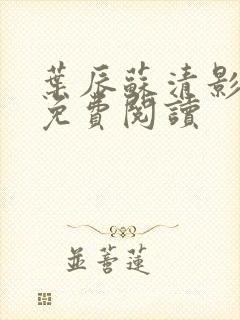 葉辰蘇清影
免費閱讀
並蓄蓮